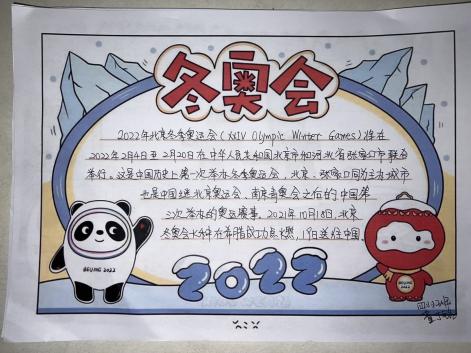 冬奥会
2022年北京冬季奥运会(XXIV Olympic Winter Games)将在
2022年2月4日至2月20日在中华人民共和国北京市和河北省张家口市联合
举行。这是中国历史上第一次举办冬季奥运会,北京、张家口同为主办城市
也是中国继北京奥运会、南京青奥会之后的中国第
3次举办的奥运赛事。2021年10月18日,北京
冬奥会火种在希腊成功点燃,19日送好中国
2022
BEIJING 2022
BEIJING 2022